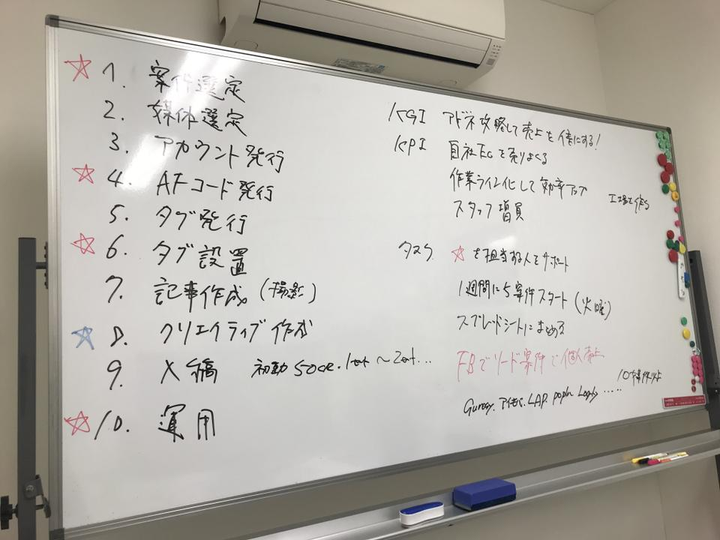 ☆ 1. 案件選定
2. 媒体選定
3. アカウント発行
☆ 4. AFコード発行
5. タグ発行
☆ 6. タグ設置
7. 記事作成(撮影)
☆ 8. クリエイティブ作成
9. 入稿 初動
☆ 10. 運用
KGI アドネ攻略して売上を倍にする!
KPI 自社ECを売りまくる
作業ライン化して効率アップ
工場を作る
スタッフ増員
タスク ☆を担当する人をサポート
1週間に5案件スタート(火曜)
スプレッドシートにまとめる
FBでリード案件で個人売上
Gunosy. LAP. popin Logly .....